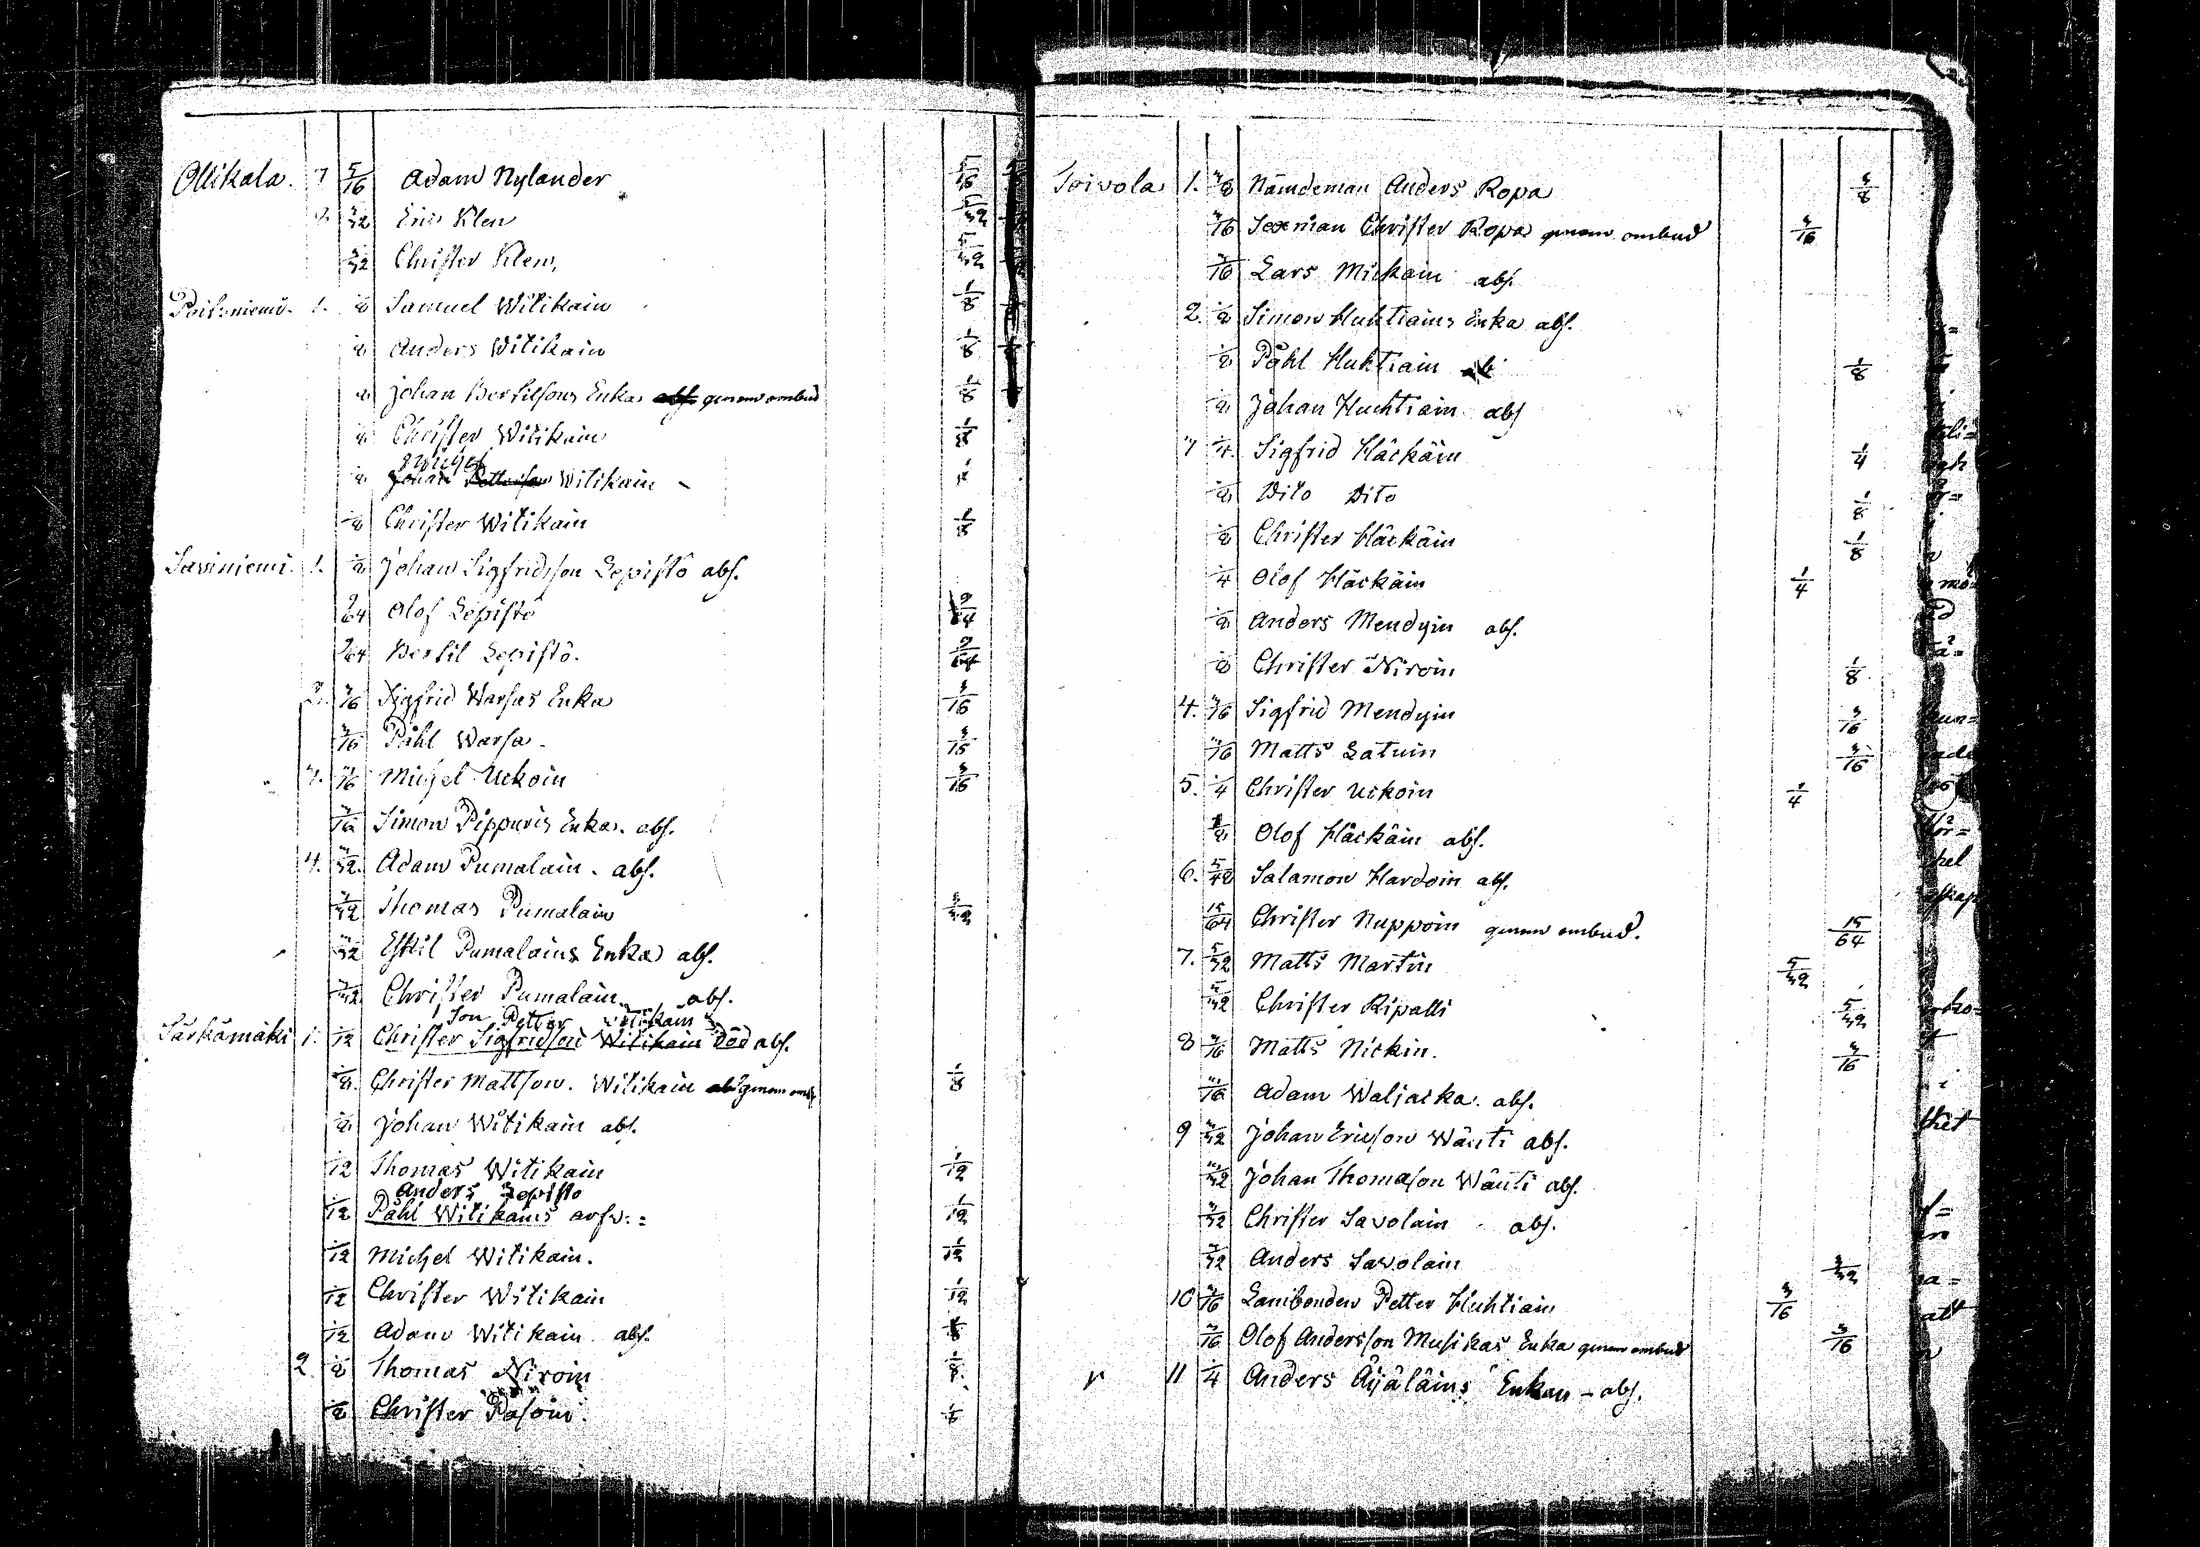 Ollikala. 5/16 Adam Nylander 5/16
5/32 Eric Klen 5/32
5/32 Christer Klen, 5/32
1. 1/8 Samuel Witikain 1/8
1/8 Anders Witikain 1/8
1/8 Johan Bertilsons Enka abs. genom ombud 1/8
1/8 Christer Witikain 1/8
Michel
1/8 Johan Pettersson Witikain
1/8 Christer Witikain 1/8
Saviniemi. 1. 1/8 Johan Sigfridsson Lepistö abs.
9/64 Olof Lepistö 9/64
9/64 Bertil Lepistö. 9/64
2. 3/16 Sigfrid Warsas Enka 3/16
3/16 Påhl Warsa. 3/16
3. 3/16 Michel Uckoin 3/16
3/16 Simon Pippuris Enka. abs.
4. 3/32 Adam Pumalain. abs.
3/32 Thomas Pumalain 3/32
3/32 Eskil Pumalains Enka abs.
3/32 Christer Pumalain abs.
Son Petter Witikain
Särkämäki 1. 1/12 Christer Sigfridson Witikain Död abs.
1/8 Christer Mattson. Witikain abs genom omb 1/8
1/8 Johan Witikain abs.
1/12 Thomas Witikain 1/12
Anders Lepistö
1/12 Påhl Witikains arfv: 1/12
1/12 Michel Witikain. 1/12
1/12 Christer Witikain 1/12
1/12 Adam Witikain abs.
2. 1/8 Thomas Niroin 1/8
1/8 Christer Pasoin. 1/8
Toivola 1. 3/8 Nämdeman Anders Ropa 3/8
3/16 Sexman Christer Ropa genom ombud 3/16
3/16 Lars Mickain abs.
2. 1/8 Simon Huhtiains Enka abs.
1/8 Påhl Huhtiain 1/8
1/8 Johan Huhtiain abs
3 1/4 Sigfrid Häckäin 1/4
1/8 Dito Dito 1/8
1/8 Christer Häckäin 1/8
1/4 Olof Häckäin 1/4
1/8 Anders Mendyin abs.
1/8 Christer Niroin 1/8
4. 3/16 Sigfrid Mendyin 3/16
3/16 Matts Latuin 3/16
5. 1/4 Christer Uckoin 1/4
1/8 Olof Häckäin abs.
6. 5/48 Salamon Hardoin abs.
15/64 Christer Nuppoin genom ombud. 15/64
7. 5/32 Matts Martin 5/32
5/32 Christer Ripatti 5/32
8 3/16 Matts Nickin. 3/16
3/16 Adam Waljacka. abs.
9 3/32 Johan Ericson Wänti abs.
3/32 Johan Thomason Wänti abs.
3/32 Christer Savolain abs.
3/32 Anders Savolain 3/32
10 3/16 Lambonden Petter Huhtiain 3/16
3/16 Olof Andersson Musikas Enka genom ombud 3/16
11 1/4 Anders Äijäläins Enkan - abs.